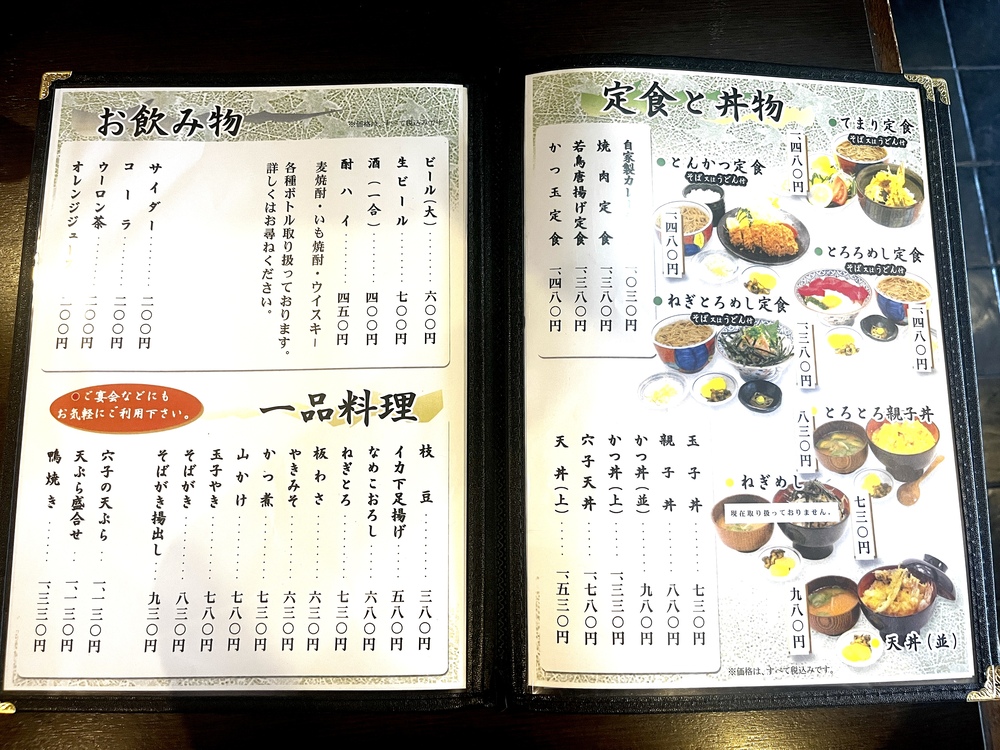 お飲み物
※価格は、すべて税込みです
ビール(大)……六〇〇円
生ビール……七〇〇円
酒(一合)……四〇〇円
酎ハイ……四五〇円
麦焼酎・いも焼酎・ウイスキー
各種ボトル取り扱っております。
詳しくはお尋ねください。
サイダー……二〇〇円
コーラ……二〇〇円
ウーロン茶……二〇〇円
オレンジジュー
〇〇円
●ご宴会などにも
お気軽にご利用下さい。
一品料理
枝豆……三八〇円
イカ下足揚げ……五八〇円
なめこおろし……六八〇円
ねぎとろ……七三〇円
板わさ……六三〇円
やきみそ……六三〇円
かつ煮……七三〇円
山かけ……七八〇円
玉子やき……七八〇円
そばがき……八三〇円
そばがき揚出し……九三〇円
穴子の天ぷら……一、一三〇円
天ぷら盛合せ……一、一三〇円
鴨焼き……一、三三〇円
定食と丼物
●てまり定食
そば又はうどん付
一、四八〇円
●とんかつ定食
そば又はうどん付
一、四八〇円
自家製カ
一、〇三〇円
焼肉定食……一、三八〇円
若鳥唐揚げ定食……一、三八〇円
かつ玉定食……一、四八〇円
●とろろめし定食
そば又はうどん付
一、四八〇円
●ねぎとろめし定食
そば又はうどん付
一、三八〇円
●とろとろ親子丼
八三〇円
●ねぎめし
現在取り扱っておりません。
七三〇円
玉子丼……七三〇円
親子丼……八八〇円
かつ丼(並)……九八〇円
かつ丼(上)……一、三三〇円
穴子天丼……一、七八〇円
天丼(上)……一、五三〇円
九八〇円
●天丼(並)
※価格は、すべて税込みです。